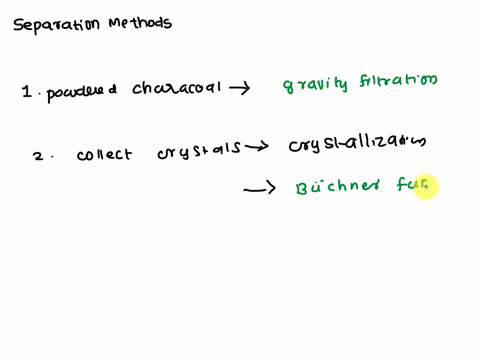 Separation Methods
1. powdered characoal → gravity filtration
2. collect crystals → crystallization
→ Büchner fun